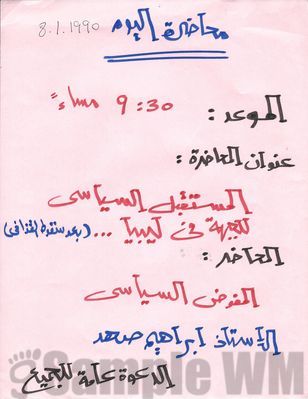 8.1.1990
محاضرة اليوم
الموعد : 9:30 مساءً
عنوان المحاضرة :
المستقبل السياسي
للجبهة في ليبيا ... (بعد سقوط القذافي)
المحاضر :
المفوض السياسي
الأستاذ ابراهيم صهد
الدعوة عامة للجميع
Sample WM